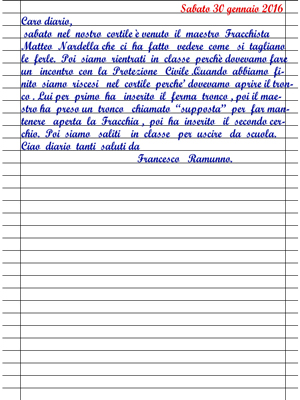 Sabato 30 gennaio 2016
Caro diario,
sabato nel nostro cortile è venuto il maestro Fracchista
Matteo Nardella che ci ha fatto vedere come si tagliano
le ferle. Poi siamo rientrati in classe perchè dovevamo fare
un incontro con la Protezione Civile .Quando abbiamo fi-
nito siamo riscesi nel cortile perche' dovevamo aprire il tron-
co . Lui per primo ha inserito il ferma tronco , poi il mae-
stro ha preso un tronco chiamato "supposta" per far man-
tenere aperta la Fracchia , poi ha inserito il secondo cer-
chio. Poi siamo saliti in classe per uscire da scuola.
Ciao diario tanti saluti da
Francesco Ramunno.